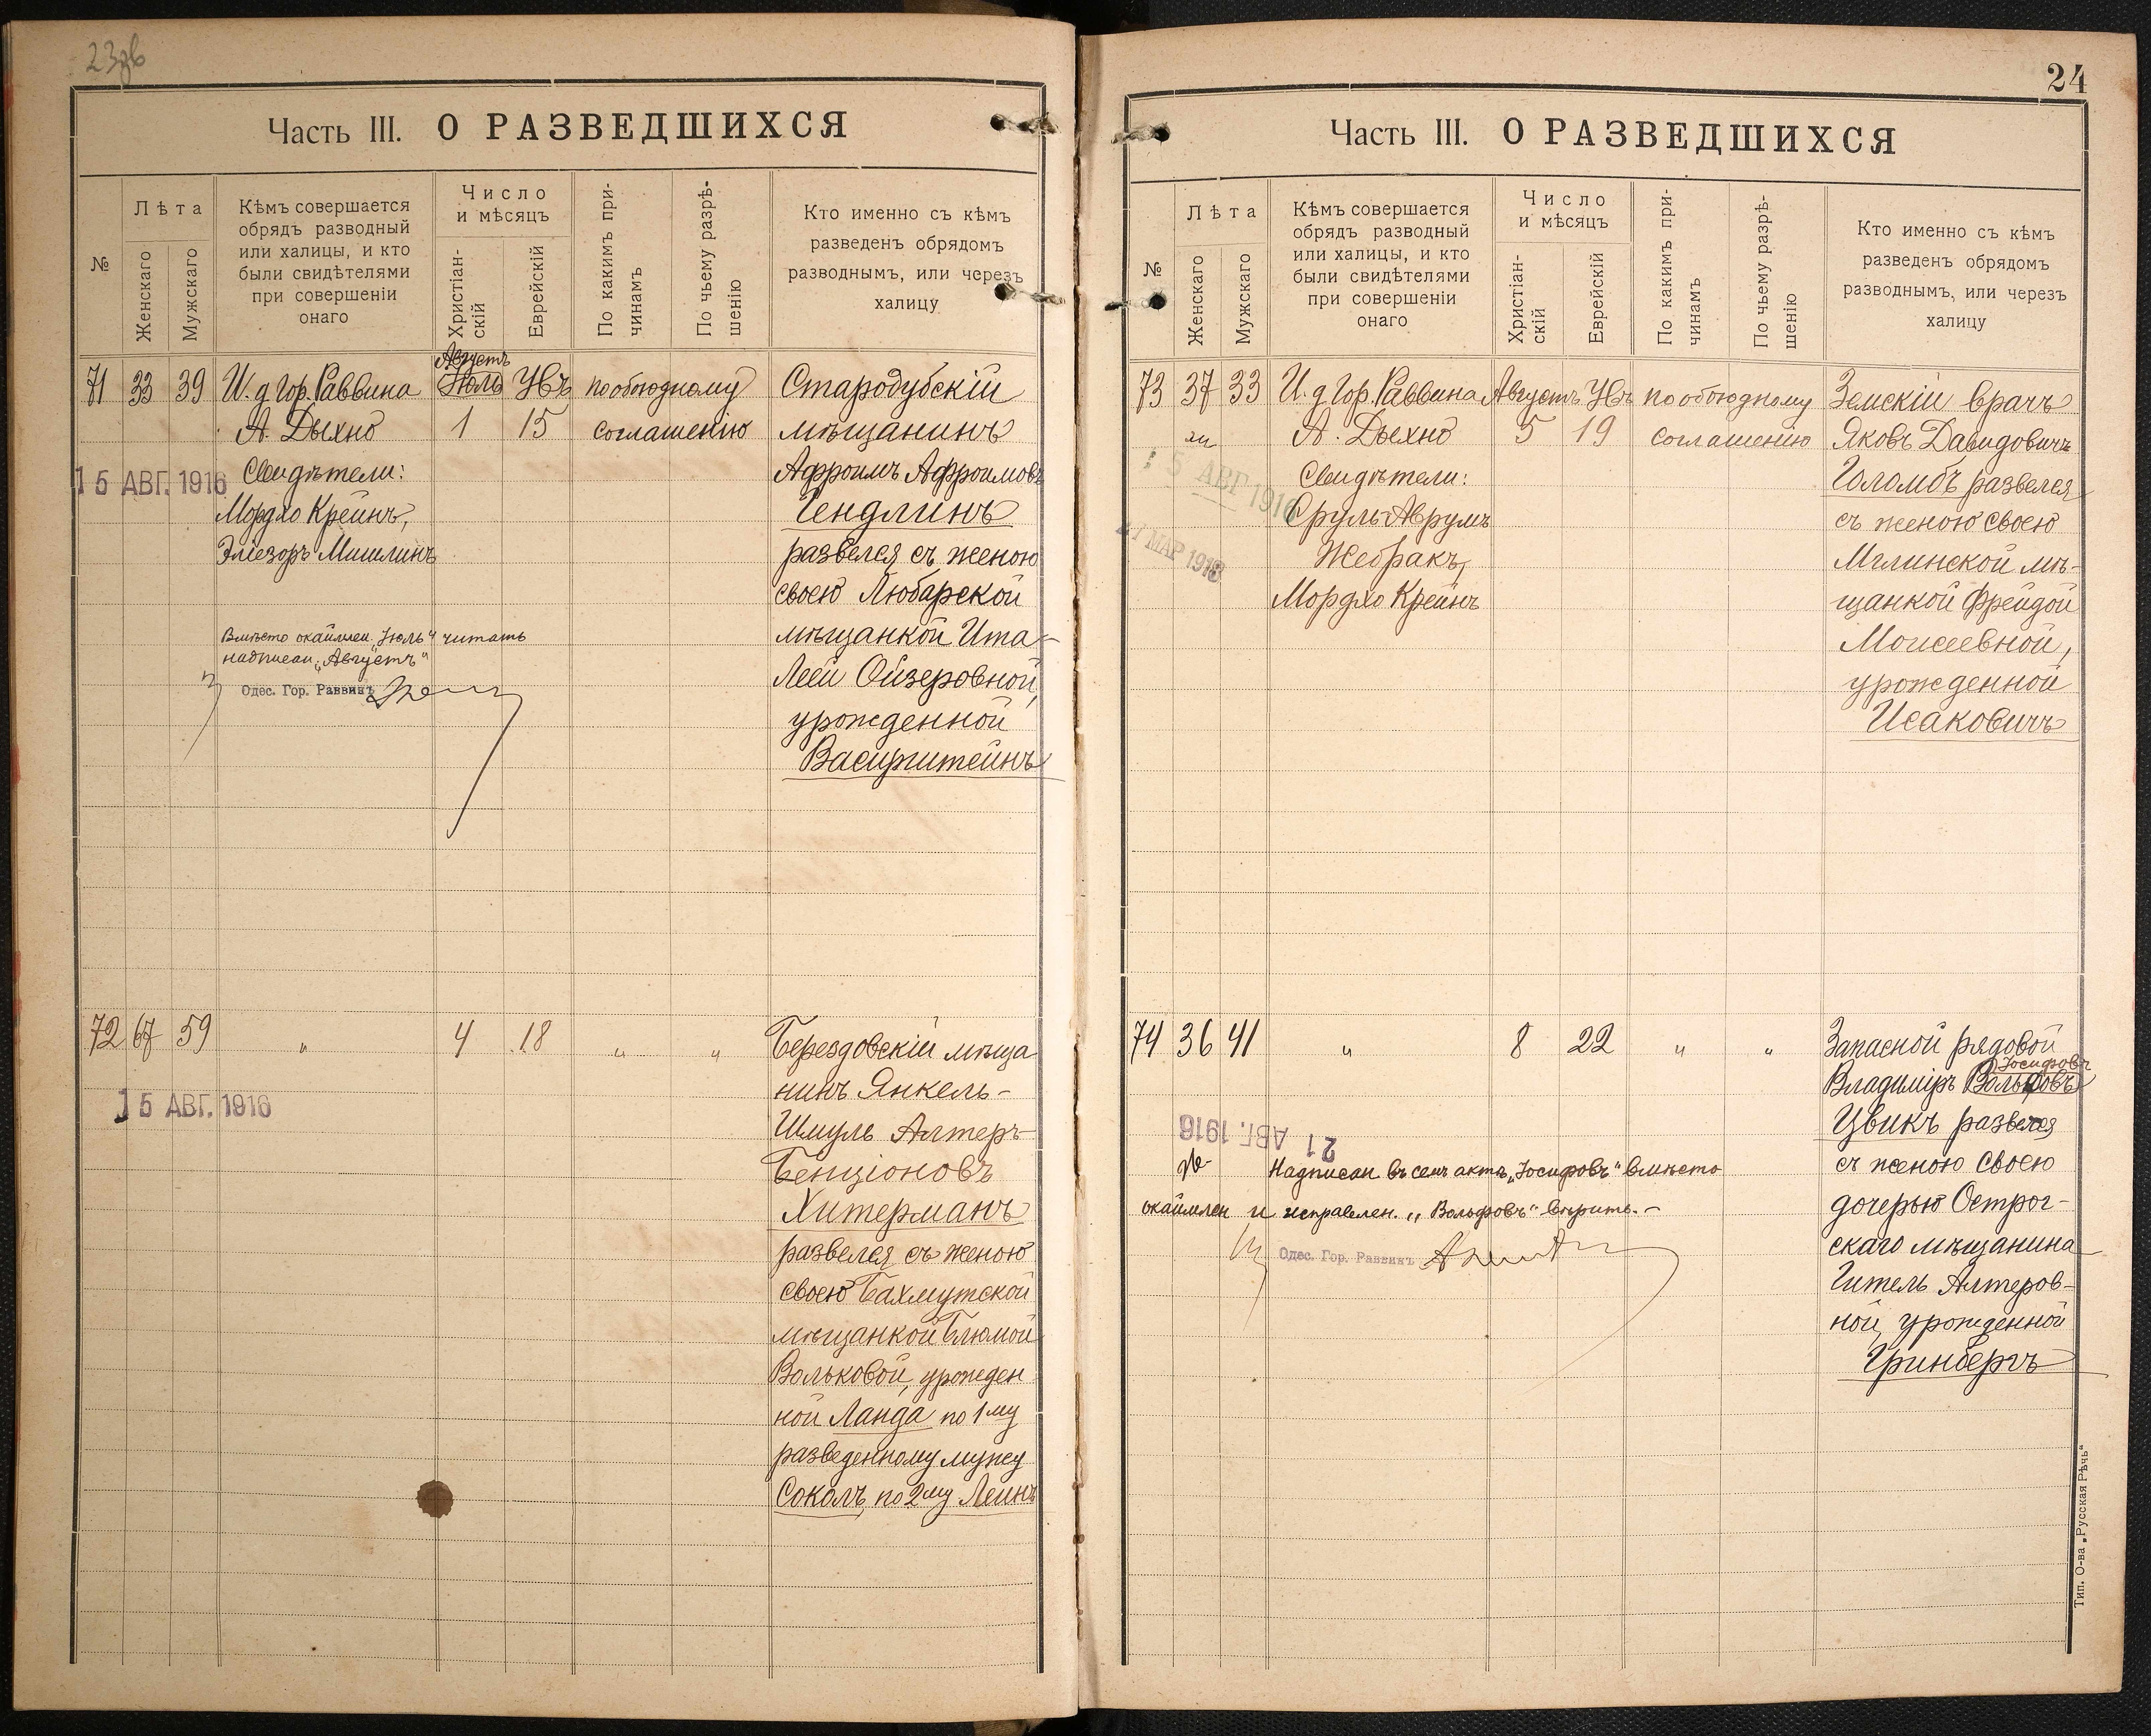 23об
Часть III. О РАЗВЕДШИХСЯ
№
Лѣта
Женскаго
Мужскаго
Кѣмъ совершается
обрядъ разводный
или халицы, и кто
были свидѣтелями
при совершеніи
онаго
Число
и мѣсяцъ
Христіан-
скій
Еврейскій
По какимъ при-
чинамъ
По чьему разрѣ-
шенію
Кто именно съ кѣмъ
разведенъ обрядомъ
разводнымъ, или черезъ
халицу
Августъ
71 33 39 И. д. Гор. Раввина Іюль Увъ по обоюдному Стародубскій
А. Дыхно 1 15 соглашенію мѣщанинъ
15 АВГ. 1916 Свидѣтели: Афроимъ Афроимовъ
Мордко Крейнъ, Гендлинъ
Эліезоръ Мишлинъ развелся съ женою
своею Любарской
Вмѣсто окаймлен. „Іюль" читать мѣщанкой Ита-
надписан. „Августъ" Леей Ойзеровной,
Одес. Гор. Раввинъ
урожденной
Васерштейнъ
72 67 59 " 4 18 " " Берездовскій мѣща
нинъ Янкель-
15 АВГ. 1916 Шмуль Алтеръ-
Бенціоновъ
Хитерманъ
развелся съ женою
своею Бахмутской
мѣщанкой Блюмой
Вольковой, урожден
ной Ланда по 1му
разведенному мужу
Соколъ, по 2му Леинъ
24
Часть III. О РАЗВЕДШИХСЯ
№
Лѣта
Женскаго
Мужскаго
Кѣмъ совершается
обрядъ разводный
или халицы, и кто
были свидѣтелями
при совершеніи
онаго
Число
и мѣсяцъ
Христіан-
скій
Еврейскій
По какимъ при-
чинамъ
По чьему разрѣ-
шенію
Кто именно съ кѣмъ
разведенъ обрядомъ
разводнымъ, или черезъ
халицу
73 37 33 И. д. Гор. Раввина Августъ Увъ по обоюдному Земскій врачъ
А. Дыхно 5 19 соглашенію Яковъ Давидовичъ
15 АВГ 1916 Свидѣтели: Голомбъ развелся
Сруль-Аврумъ съ женою своею
МАР 1918 Жебракъ, Мглинской мѣ-
Мордко Крейнъ щанкой Фрейдой
Моисеевной,
урожденной
Исаковичъ
74 36 41 " 8 22 " " Запасной рядовой
Іосифовъ
Владиміръ Вольфовъ
21 АВГ. 1916 Цвикъ развелся
Надписан. въ семъ актѣ „Іосифовъ" вмѣсто съ женою своею
окаймлен и исправлен. „Вольфовъ" вѣрить.- дочерью Острог-
Одес. Гор. Раввинъ скаго мѣщанина
Гитель Алтеров-
ной, урожденной
Гринбергъ
Тип. О-ва „Русская Рѣчь"